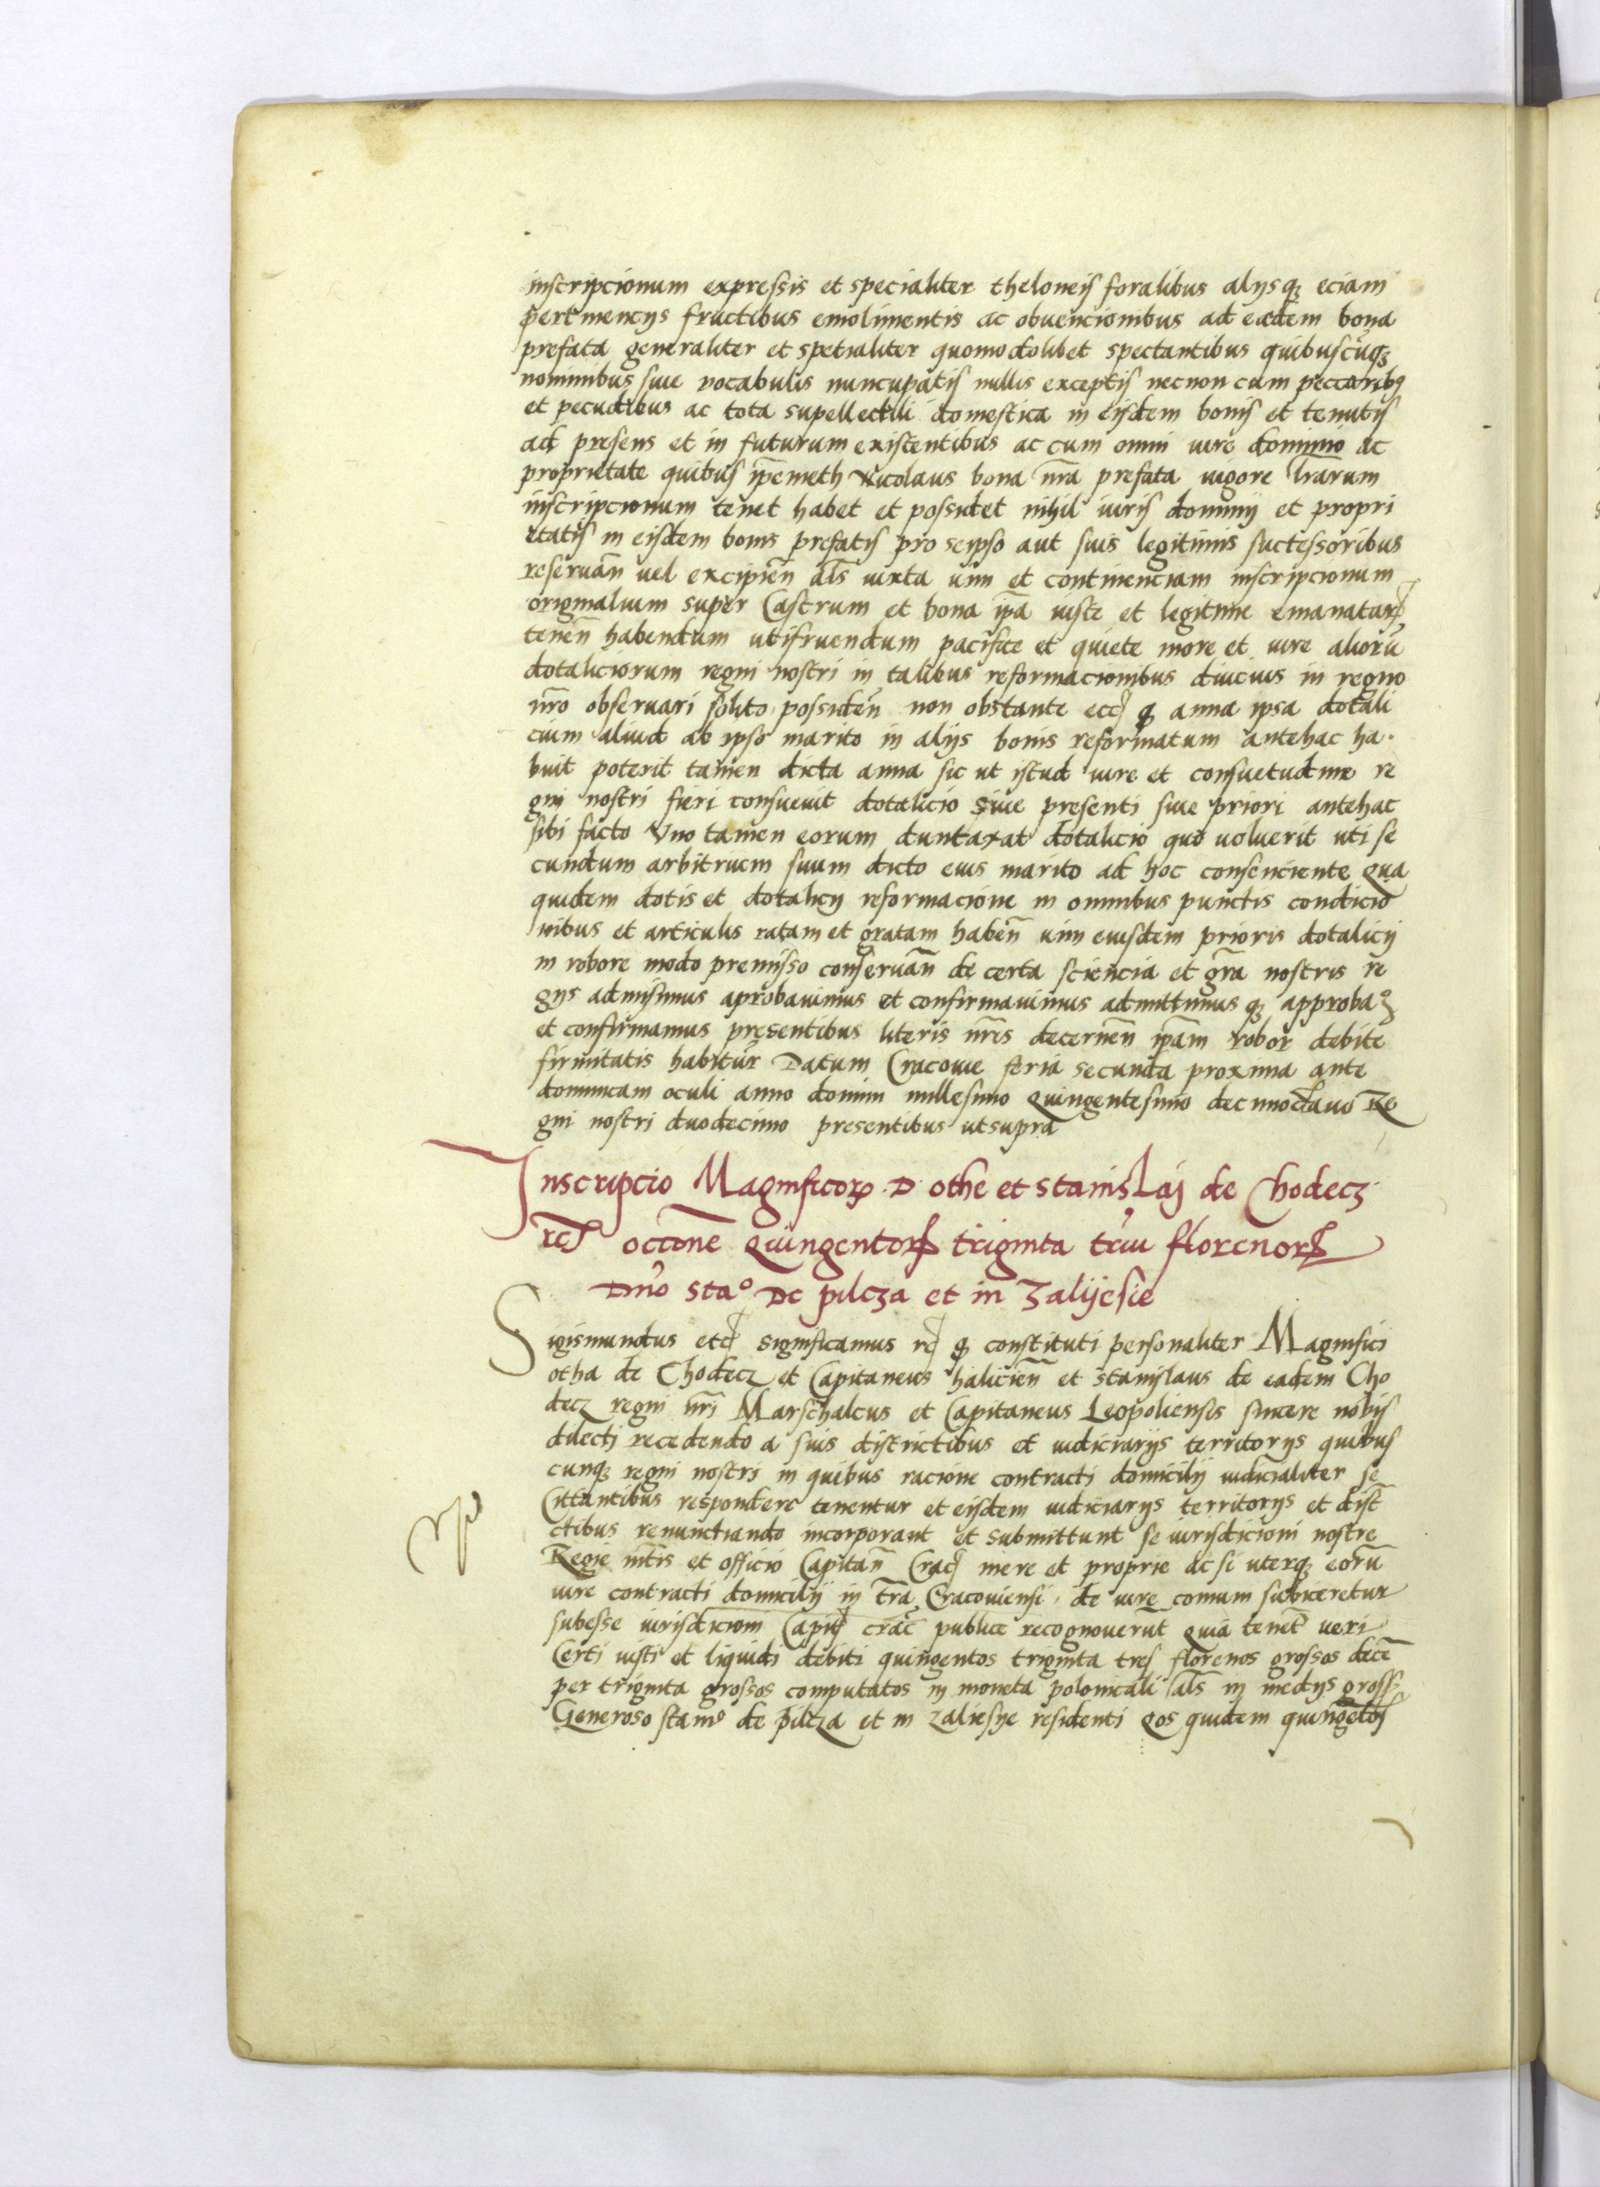 inscripcionum expressis et specialiter theloneis foralibus alijsq; eciam
pertinencijs fructibus emolimentis ac obvencionibus ad eadem bona
prefata generaliter et spetialiter quomodolibet spectantibus quibuscūq;
nominibus sive vocabulis nuncupatis nullis exceptis necnon cum peccoribq
et pecudibus ac tota supellectili domestica in eisdem bonis et tenutis
ad presens et in futurum existentibus ac cum omni iure dominio ac
proprietate quibus ip̄emeth Nicolaus bona nr̄a prefata vigore lr̄arum
inscripcionum tenet habet et possidet nihil iuris dominij et propri
etatis in eisdem bonis prefatis pro seipso aut suis legitimis successoribus
reservan̄ vel excipien̄ al̄s iuxta vim et continenciam inscripcionum
originalium super Castrum et bona ip̄a iuste et legitime emanatarꝝ
tenen̄ habendum utifruendum pacifice et quiete more et iure aliorū
dotaliciorum regni nostri in talibus reformacionibus diucius in regno
nr̄o observari solito possiden̄ non obstante etc̄ ꝙ anna ipsa dotali
cium aliud ab ipso marito in alijs bonis reformatum antehac ha
buit poterit tamen dicta anna sic ut istud iure et consuetudine re
gni nostri fieri consuevit dotalicio sive presenti sive priori antehac
sibi facto Vno tamen eorum duntaxat dotalicio quo voluerit uti se
cundum arbitrium suum dicto eius marito ad hoc consenciente Qua
quidem dotis et dotalicij reformacione in omnibus punctis condicio
nibus et articulis ratam et gratam haben̄ vim eiusdem prioris dotalicij
in robore modo premisso conservan̄ de certa sciencia et gr̄a nostris re
gijs admisimus aprobavimus et confirmavimus admittimus q; approbaꝰ
et confirmamus presentibus literis nr̄is decernen̄ ip̄am robor debite
firmitatis habitur̄ Datum Cracovie feria secunda proxima ante
dominicam oculi anno domini millesimo Quingentesimo decimooctavo Re
gni nostri duodecimo presentibus utsupra
Inscripcio Magnificoꝝ D othe et stanislai de Chodecz
rc̄ occōne Quingentorꝝ triginta triū florenorꝝ
Dn̄o staᵒ De pilcza et in Zalijesie
Sigismundus etc̄ significamus rc̄ ꝙ constituti personaliter Magnifici
otha de Chodecz et Capitaneus halicien̄ et stanislaus de eadem Cho
decz regni nr̄i Marschalcus et Capitaneus Leopoliensis sincere nobis
dilecti recedendo a suis districtibus et iudiciarijs territorijs quibus
cunq; regni nostri in quibus racione contracti domicilij iudicialiter se
Cittantibus respondere tenentur et eisdem iudiciarijs territorijs et dist̄
ctibus renunctiando incorporant et submittunt se iurisdicioni nostre
Regie mt̄is et officio Capitan̄ Crac̄ mere et proprie ac si uterq; eorū
iure contracti domicilij in tr̄a Cracoviensi de iure comum subiiceretur
subesse iurisdicioni Capit̄ crac̄ publice recognoverūt Quia tenēt veri
Certi iusti et liquidi debiti quingentos triginta tres florenos grossos decē
per triginta grossos computatos in moneta polonicali al̄s in medijs gross
Generoso stanᵒ de pilcza et in Zaliesije residenti Qos quidem quingētos